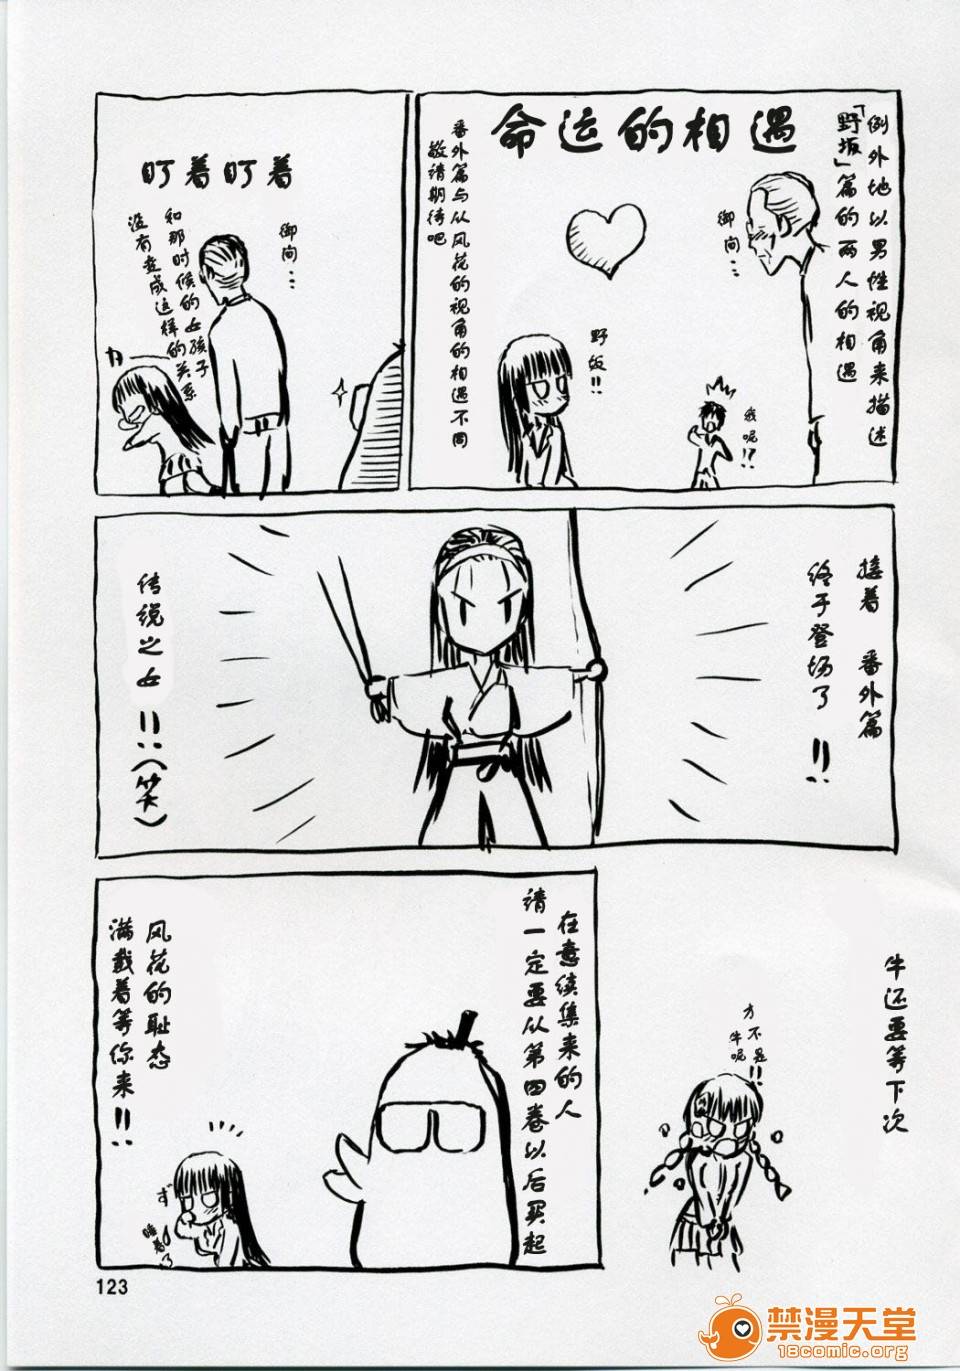 例外地以男性视角来描述
「野坂」篇的两人的相遇
命运的相遇
御间…
我呢!?
野坂!!
番外篇与从风花的视角的相遇不同
敬请期待吧
盯着盯着
御间…
和那时候的女孩子
没有变成这样的关系
接着 番外篇
终于登场了!!
传说之女!!(笑)
牛还要等下次
才不是
牛呢!!
在意续集来的人
请一定要从第四卷以后买起
风花的耻态
满载着等你来!!
ず
睡着了
123
禁漫天堂
18comic.org